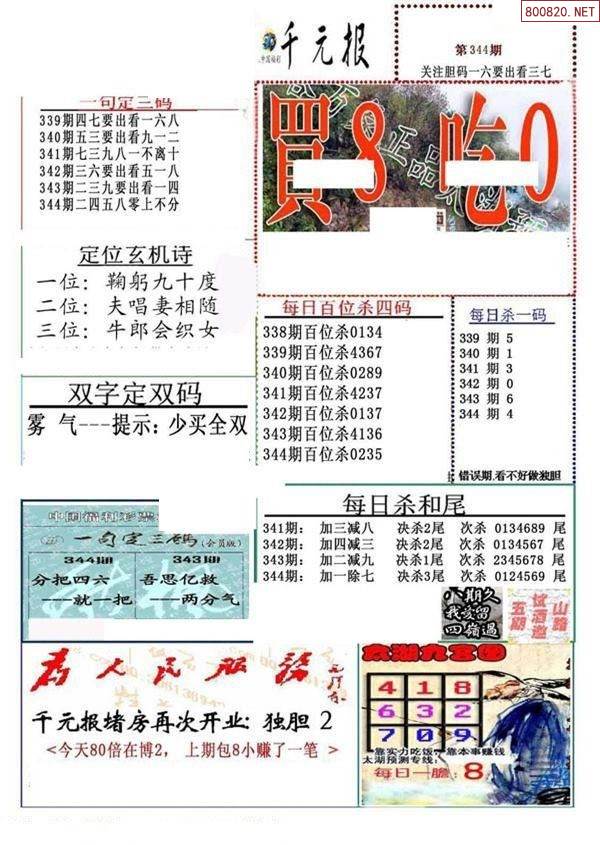 800820.NET
千元报
第344期
关注胆码一六要出看三七
一句定三码
339期四七要出看一六八
340期五三要出看九一二
341期七三九八一不离十
342期三六要出看五一八
343期二三九要出看一四
344期二四五八零上不分
買8吃0
定位玄机诗
一位：鞠躬九十度
二位：夫唱妻相随
三位：牛郎会织女
每日百位杀四码
338期百位杀0134
339期百位杀4367
340期百位杀0289
341期百位杀4237
342期百位杀0137
343期百位杀4136
344期百位杀0235
每日杀一码
339 期 5
340 期 1
341 期 3
342 期 0
343 期 6
344 期 4
错误期,看不好做独胆
双字定双码
雾 气---提示：少买全双
一句定三码(会员版)
344期：
分把四六
——就一把
343期：
吾思亿救
——两分气
每日杀和尾
341期： 加三减八 决杀2尾 次杀 0134689 尾
342期： 加四减三 决杀2尾 次杀 0134567 尾
343期： 加二减九 决杀1尾 次杀 2345678 尾
344期： 加一除七 决杀3尾 次杀 0124569 尾
八期久
我爱留
四嶺過
山路
试酒邀
五期
为人民服务
千元报堵房再次开业：独胆 2
<今天80倍在博2， 上期包8小赚了一笔 >
太湖九宫图
4 1 8
6 3 2
7 0 9
靠实力吃饭，靠本事赚钱
太湖预测专线：
每日一胆：8